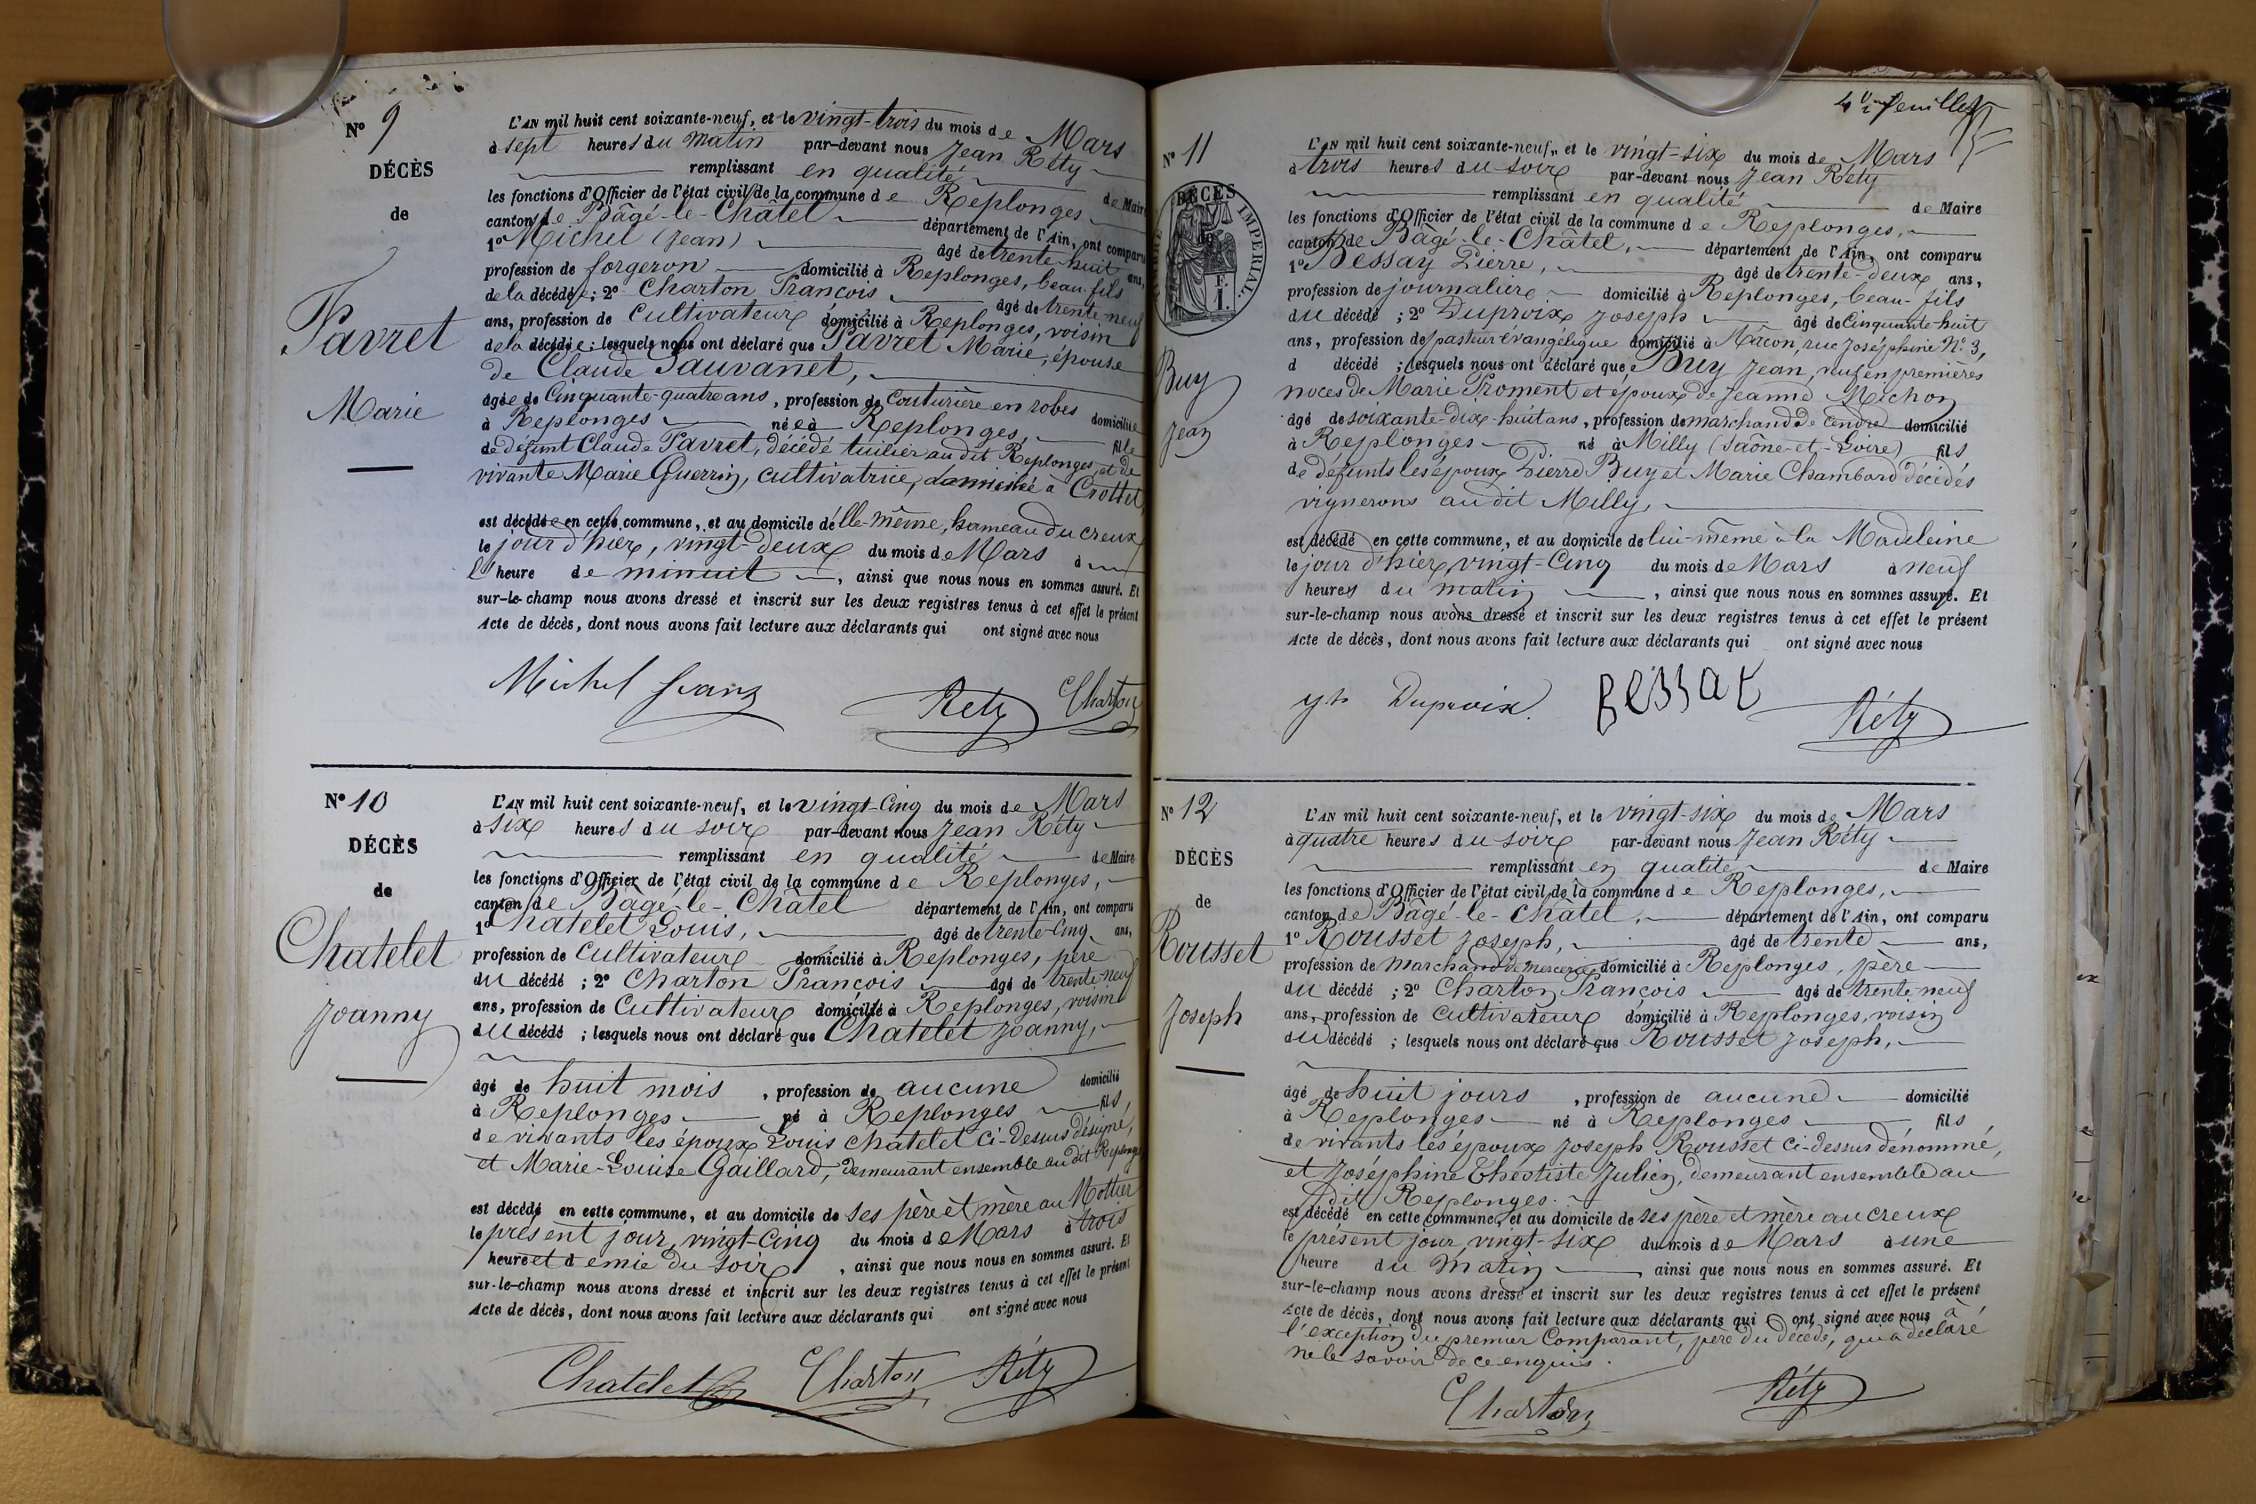 N° 9
DÉCÈS
de
Favret
Marie
L'AN mil huit cent soixante-neuf, et le vingt-trois du mois de Mars
à sept heures du matin par-devant nous Jean Réty
remplissant en qualité de Maire
les fonctions d'Officier de l'état civil de la commune de Replonges
canton de Bâgé-le-Châtel département de l'Ain, ont comparu
1° Michel (Jean) âgé de trente-huit ans,
profession de forgeron domicilié à Replonges, beau-fils
de la décédée ; 2° Charton François âgé de trente-neuf
ans, profession de Cultivateur domicilié à Replonges, voisin
de la décédée ; lesquels nous ont déclaré que Favret Marie, épouse
de Claude Sauvanet,
âgée de Cinquante-quatre ans, profession de Couturière en robes domiciliée
à Replonges née à Replonges, fille
de défunt Claude Favret, décédé tuilier au dit Replonges, et de
vivante Marie Guerrin, cultivatrice, domicilié à Crottet
est décédée en cette commune, et au domicile d'elle-même, hameau du creux
le jour d'hier, vingt-deux du mois de Mars à
l'heure de minuit, ainsi que nous nous en sommes assuré. Et
sur-le-champ nous avons dressé et inscrit sur les deux registres tenus à cet effet le présent
Acte de décès, dont nous avons fait lecture aux déclarants qui ont signé avec nous
Michel Jean Réty Charton
N° 10
DÉCÈS
de
Chatelet
Joanny
L'AN mil huit cent soixante-neuf, et le vingt-Cinq du mois de Mars
à six heures du soir par-devant nous Jean Réty
remplissant en qualité de Maire
les fonctions d'Officier de l'état civil de la commune de Replonges,
canton de Bâgé-le-Châtel département de l'Ain, ont comparu
1° Chatelet Louis, âgé de trente-Cinq ans,
profession de Cultivateur domicilié à Replonges, père
du décédé ; 2° Charton François âgé de trente-neuf
ans, profession de Cultivateur domicilié à Replonges, voisin
du décédé ; lesquels nous ont déclaré que Chatelet Joanny,
âgé de huit mois, profession de aucune domicilié
à Replonges né à Replonges fils,
de vivants les époux Louis Chatelet Ci-Dessus désigné,
et Marie-Louise Gaillard, demeurant ensemble au dit Replonges
est décédé en cette commune, et au domicile de ses père et mère au Mottier
le présent jour, vingt-Cinq du mois de Mars à trois
heure et demie du soir, ainsi que nous nous en sommes assuré. Et
sur-le-champ nous avons dressé et inscrit sur les deux registres tenus à cet effet le présent
Acte de décès, dont nous avons fait lecture aux déclarants qui ont signé avec nous
Chatelet Charton Réty
feuillet
N° 11
DÉCÈS
de
TIMBRE IMPÉRIAL.
Buy
Jean
L'AN mil huit cent soixante-neuf, et le vingt-six du mois de Mars
à trois heures du soir par-devant nous Jean Réty
remplissant en qualité de Maire
les fonctions d'Officier de l'état civil de la commune de Replonges,
canton de Bâgé-le-Châtel, département de l'Ain, ont comparu
1° Bessay Pierre, âgé de trente-deux ans,
profession de journalier domicilié à Replonges, beau-fils
du décédé ; 2° Duproix Joseph âgé de Cinquante-huit
ans, profession de pasteur évangélique domicilié à Mâcon, rue Joséphine N° 3,
d décédé ; lesquels nous ont déclaré que Buy Jean, veuf en premières
noces de Marie Froment et époux de Jeanne Michon
âgé de soixante-dix-huit ans, profession de marchand de Cendre domicilié
à Replonges né à Milly (Saône-et-Loire) fils
de défunts les époux Pierre Buy et Marie Chambard décédés
vignerons au dit Milly,
est décédé en cette commune, et au domicile de lui-même à la Madeleine
le jour d'hier, vingt-Cinq du mois de Mars à neuf
heures du matin, ainsi que nous nous en sommes assuré. Et
sur-le-champ nous avons dressé et inscrit sur les deux registres tenus à cet effet le présent
Acte de décès, dont nous avons fait lecture aux déclarants qui ont signé avec nous
Jph Duproix. Bessat Réty
N° 12
DÉCÈS
de
Rousset
Joseph
L'AN mil huit cent soixante-neuf, et le vingt-six du mois de Mars
à quatre heures du soir par-devant nous Jean Réty
remplissant en qualité de Maire
les fonctions d'Officier de l'état civil de la commune de Replonges,
canton de Bâgé-le-Châtel, département de l'Ain, ont comparu
1° Rousset Joseph, âgé de trente ans,
profession de Marchand de mercerie domicilié à Replonges, père
du décédé ; 2° Charton François âgé de trente neuf
ans, profession de Cultivateur domicilié à Replonges, voisin
du décédé ; lesquels nous ont déclaré que Rousset Joseph,
âgé de huit jours, profession de aucune domicilié
à Replonges né à Replonges fils
de vivants les époux Joseph Rousset Ci-dessus dénommé,
et Joséphine Théotiste Julien, demeurant ensemble au
dit Replonges.
est décédé en cette commune, et au domicile de ses père et mère au creux
le présent jour vingt-six du mois de Mars à une
heure du matin, ainsi que nous nous en sommes assuré. Et
sur-le-champ nous avons dressé et inscrit sur les deux registres tenus à cet effet le présent
Acte de décès, dont nous avons fait lecture aux déclarants qui ont signé avec nous à
l'exception du premier Comparant, père du décédé, qui a déclaré
ne le savoir de ce enquis.
Charton Réty